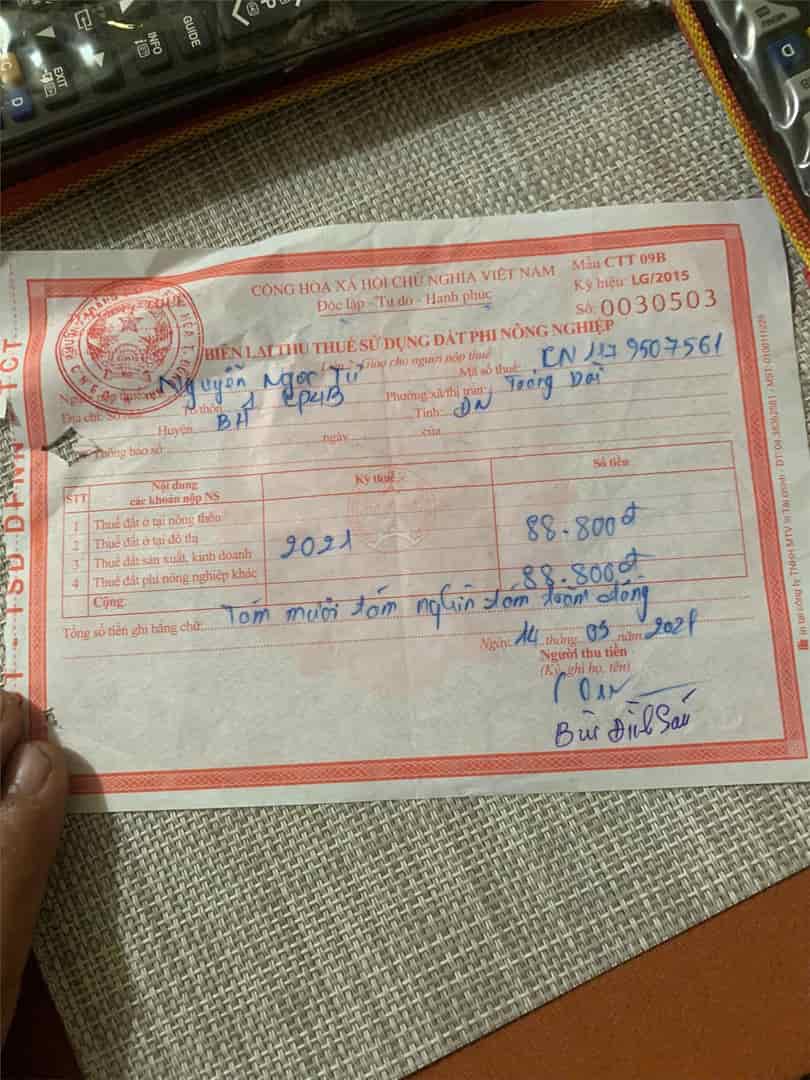 GUIDE
INFO
EXIT
D
CỘNG HOÀ XÃ HỘI CHỦ NGHĨA VIỆT NAM
Độc lập - Tự do - Hạnh phúc
Mẫu CTT 09B
Ký hiệu: LG/2015
Số: 0030503
BIÊN LAI THU THUẾ SỬ DỤNG ĐẤT PHI NÔNG NGHIỆP
Giao cho người nộp thuế
Nguyễn Ngọc Tú Mã số thuế: CN 117 9507561
Địa chỉ: Số Tổ thôn: 1 KP4B Phường xã/thị trấn: Trảng Dài
Huyện: BH Tỉnh: ĐN
Thông báo số ngày của
STT Nội dung các khoản nộp NS Kỳ thuế Số tiền
1 Thuế đất ở tại nông thôn
2 Thuế đất ở tại đô thị 2021 88.800đ
3 Thuế đất sản xuất, kinh doanh
4 Thuế đất phi nông nghiệp khác
Cộng 88.800đ
Tổng số tiền ghi bằng chữ: Tám mươi tám nghìn tám trăm đồng
Ngày 14 tháng 09 năm 2021
Người thu tiền
(Ký, ghi họ, tên)
Bùi Đình Sáu